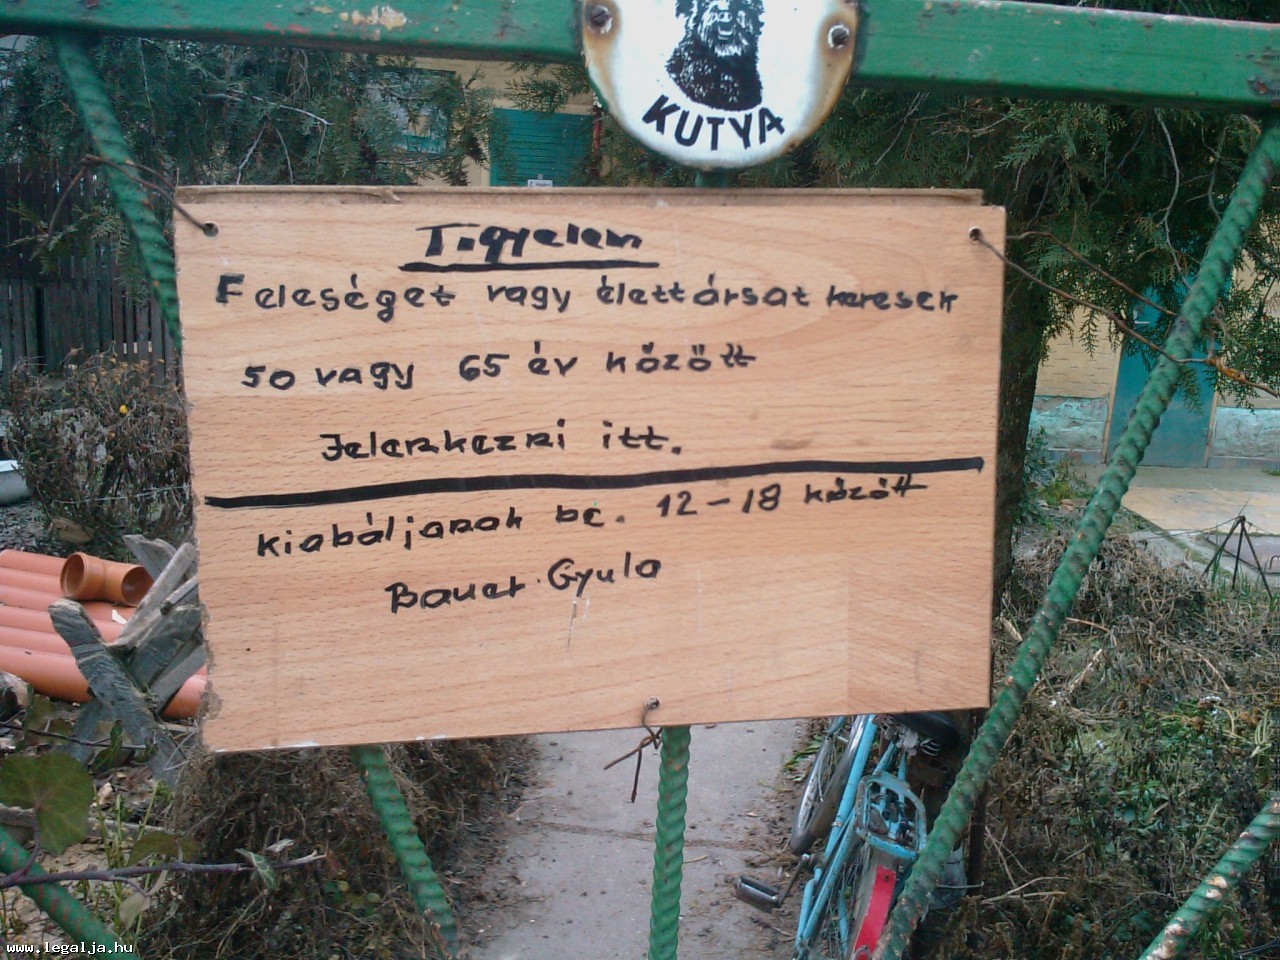 KUTYA
Tigyelem
Feleséget vagy élettársat keresek
50 vagy 65 év között
Jelenkezni itt.
kiabáljanak be. 12-18 között
Bauer Gyula
www.legalja.hu